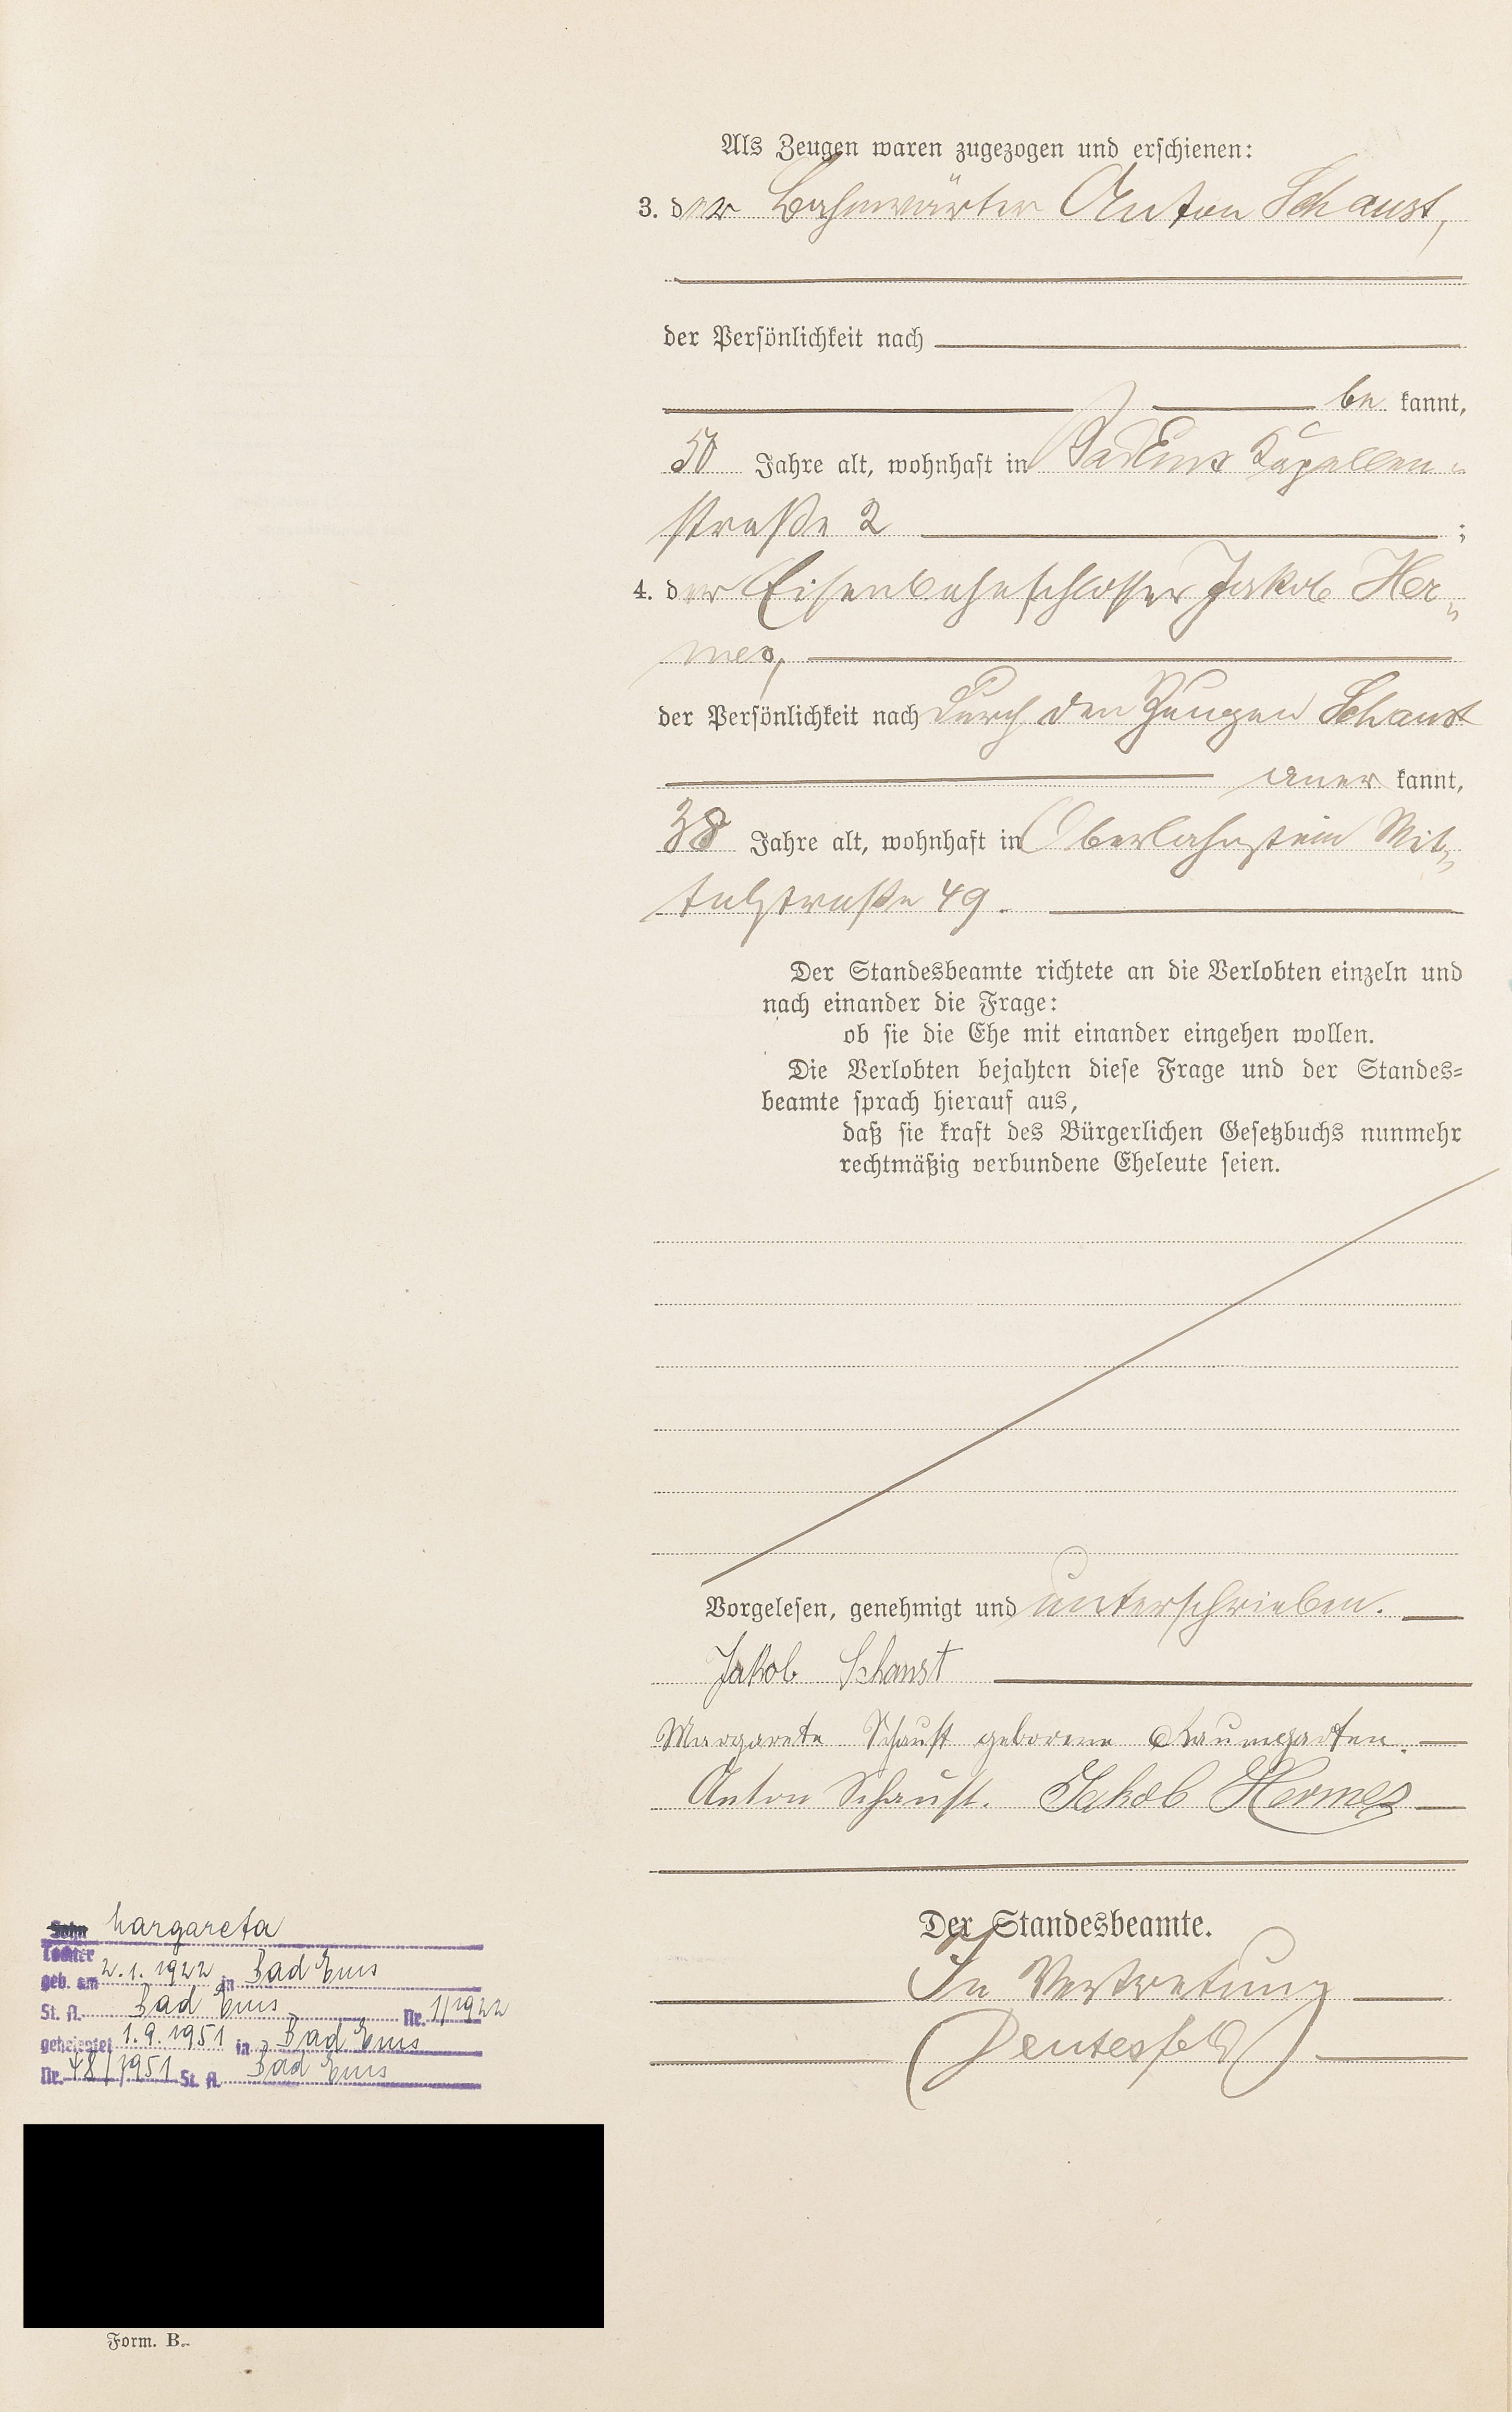 Als Zeugen waren zugezogen und erschienen:
3. der Bahnwärter Anton Schaust,
der Persönlichkeit nach
be kannt,
50 Jahre alt, wohnhaft in Bad Ems Kapellen-
straße 2 ;
4. der Eisenbahnschlosser Jakob Her-
mes,
der Persönlichkeit nach durch den Zeugen Schaust
aner kannt,
38 Jahre alt, wohnhaft in Oberlahnstein Mit-
telstraße 49.
Der Standesbeamte richtete an die Verlobten einzeln und
nach einander die Frage:
ob sie die Ehe mit einander eingehen wollen.
Die Verlobten bejahten diese Frage und der Standes-
beamte sprach hierauf aus,
daß sie kraft des Bürgerlichen Gesetzbuchs nunmehr
rechtmäßig verbundene Eheleute seien.
Vorgelesen, genehmigt und unterschrieben.
Jakob Schaust
Margarete Schaust geborene Baumgarten.
Anton Schaust. Jakob Hermes
Der Standesbeamte.
In Vertretung
Deutesfeld
Sohn Margareta
Tochter
geb. am 2.1.1922 in Bad Ems
St. A. Bad Ems Nr. 1/1922
geheiratet 1.9.1951 in Bad Ems
Nr. 48/1951 St. A. Bad Ems
Form. B.